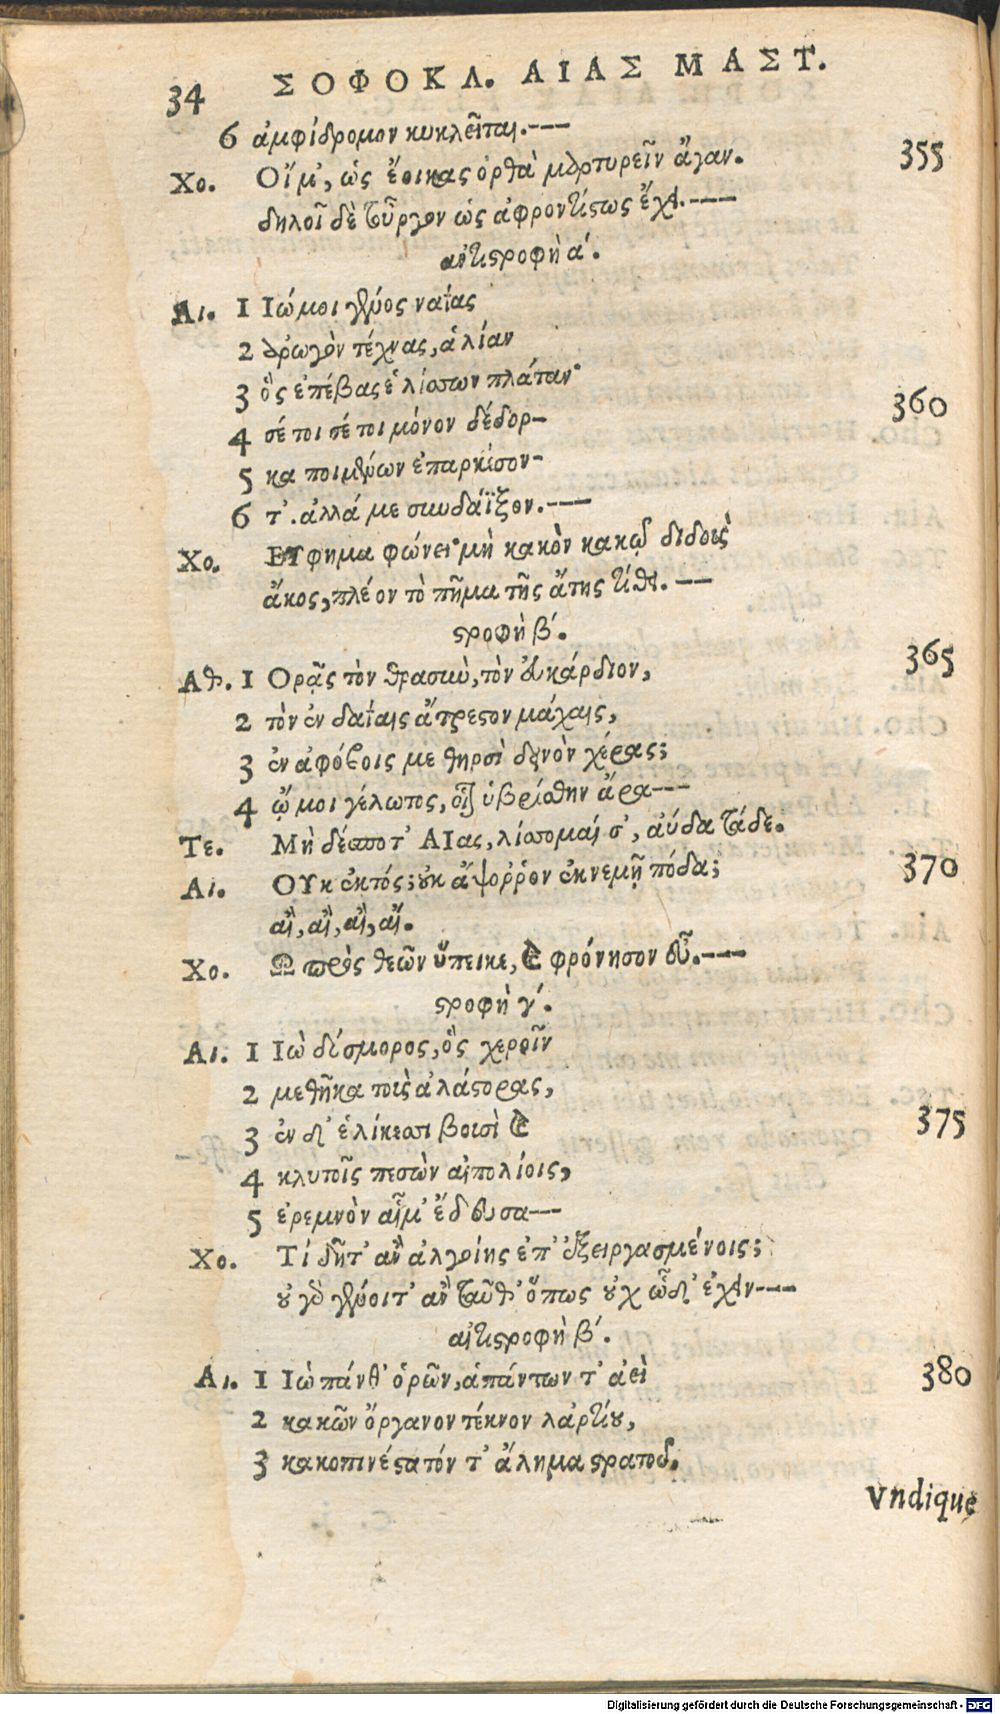 34 ΣΟΦΟΚΛ. ΑΙΑΣ ΜΑΣΤ.
6 ἀμφίδρομον κυκλεῖται.---
Χο. Οἴμ', ὡς ἔοικας ὀρθὰ μαρτυρεῖν ἄγαν. 355
δηλοῖ δὲ τοὖργον ὡς ἀφροντίστως ἔχει.---
ἀντιστροφὴ α΄.
Αι. 1 Ἰώ μοι γένος ναΐας
2 ἀρωγὸν τέχνας, ἁλίαν
3 ὃς ἐπέβας ἑλίσσων πλάταν·
4 σέ τοι σέ τοι μόνον δέδορ- 360
5 κα ποιμένων ἐπαρκέσον-
6 τ'. ἀλλά με συνδάϊξον.---
Χο. ΕΥφημα φώνει· μὴ κακὸν κακῷ διδοὺς
ἄκος, πλέον τὸ πῆμα τῆς ἄτης τίθει.--
στροφὴ β΄.
Αθ. 1 Ὁρᾷς τὸν θρασιὺ, τὸν εὐκάρδιον, 365
2 τὸν ἐν δαΐαις ἄτρεστον μάχαις,
3 ἐν ἀφόβοις με θηρσὶ δεινὸν χέρας;
4 ᾤμοι γέλωτος, οἷον ὑβρίσθην ἄρα---
Τε. Μὴ δέσποτ' ΑΙας, λίσσομαί σ', αὔδα τάδε.
Αι. ΟΥκ ἐκτός; οὐκ ἄψορῥον ἐκνεμῇ πόδα; 370
αἲ, αἲ, αἲ, αἴ.
Χο. Ὦ πρὸς θεῶν ὕπεικε, καὶ φρόνησον εὖ.---
στροφὴ γ΄.
Αι. 1 Ἰὼ δύσμορος, ὃς χεροῖν
2 μεθῆκα τοὺς ἀλάστορας,
3 ἐν δ' ἑλίκεσσι βουσὶ καὶ 375
4 κλυτοῖς πεσὼν αἰπολίοις,
5 ἐρεμνὸν αἷμ' ἔδευσα---
Χο. Τί δῆτ' ἂν ἀλγοίης ἐπ' ἐξειργασμένοις;
οὐ γὰρ γένοιτ' ἂν ταῦθ' ὅπως οὐχ ὧδ' ἔχειν---
ἀντιστροφὴ β΄.
Αι. 1 Ἰὼ πάνθ' ὁρῶν, ἁπάντων τ' ἀεὶ 380
2 κακῶν ὄργανον τέκνον λαρτίου,
3 κακοπινέστατόν τ' ἄλημα στρατοῦ.
Vndique
Digitalisierung gefördert durch die Deutsche Forschungsgemeinschaft - DFG